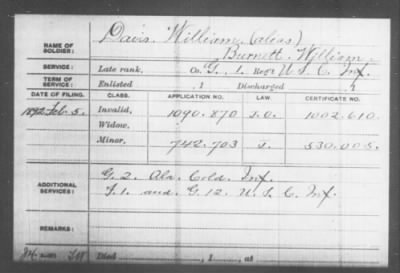 Davis, William (alias)
NAME OF SOLDIER:
Burnett, William
SERVICE: Late rank, Co. G, 1 Reg't U.S.C. Inf.
TERM OF SERVICE: Enlisted , 1 Discharged , 1
DATE OF FILING. CLASS. APPLICATION NO. LAW. CERTIFICATE NO.
1892 Feb. 5. Invalid, 1090.870 1002.610
Widow,
Minor, 742.703 530.005
ADDITIONAL SERVICES: G. 2. Ala. Cold. Inf.
1. and G. 12. U.S.C. Inf.
REMARKS:
Died , 1 , at